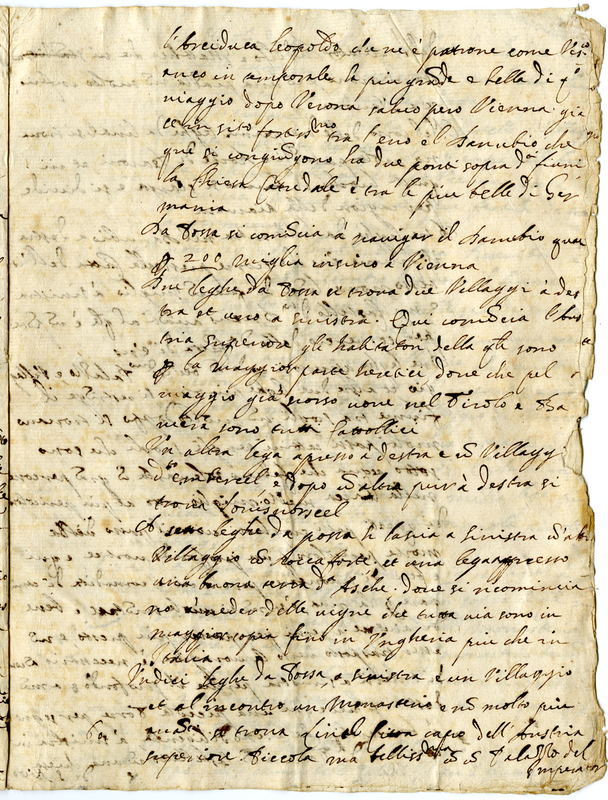 l'Arciduca leopoldo che ne è patrone come Vesco
anco in temporale la piu grãde e bella di qto
viaggio dopo Verona salvo pero Vienna gia
ce in sito fortissmo tra l'eno e 'l Danubio che
quì si congiũgono ha due ponti sopra dti fiumi
la Chiesa Catedale è tra le piu belle di Ger
mania
Da Possa si comĩcia à navigar il Danubio quasi
200 miglia insino a Vienna
Due leghe da Possa si trova due Villaggi à des
tra et uno a sinistra. Qui comĩcia l'Aus
tria superiore gli habitatori della qle sono
la maggior parte heretici dove che pel
viaggio già scorso cioe nel Tirolo e Ba
viera sono tutti Cattolici
Un altra lega apresso à destra e un Villaggio
d. e dopo un altra pur à destra si
trova
A sette leghe da possa si lascia a sinistra un altro
Villaggio cõ Roccaforte et una lega appresso
una buona terra da Asche. dove si ricomincia
no a veder delle vigne che tutta via sono in
maggior copia fino in Ungheria piu che in
Italia
Undici leghe da Possa a sinistra è un Villaggio
et al incontro un Monasterio e nõ molto piu
avãti si trova Linz Città capo dell'Austria
superiore. Piccola ma bellissma cõ un Palazzo del
Imperator